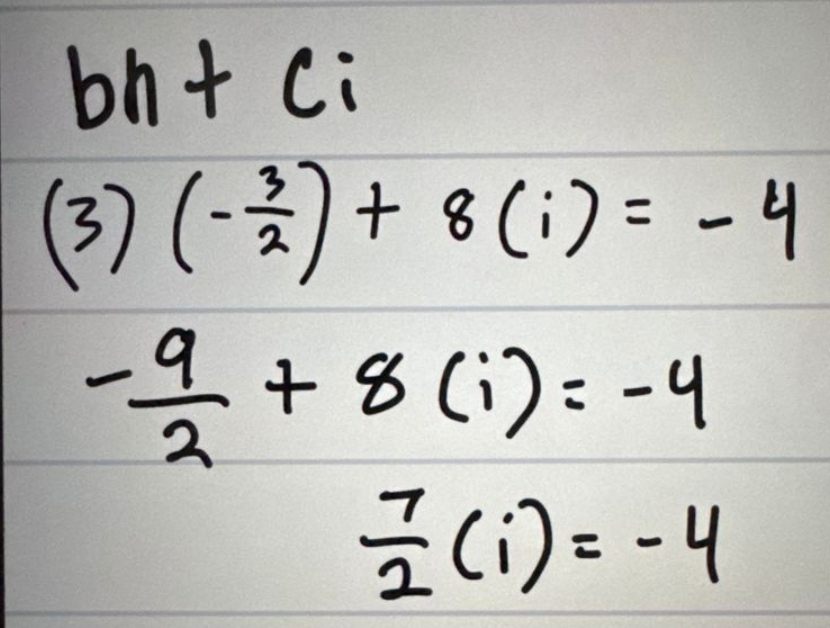 bh + ci
(3) (-3/2) + 8 (i) = -4
-9/2 + 8 (i) = -4
7/2 (i) = -4